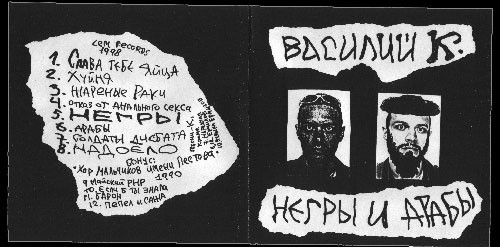 LEM RECORDS
1998
1. СЛАВА ТЕБЕ ЯЙЦА
2. ХУЙНЯ
3. ЖАРЕНЫЕ РАКИ
4. ОТКАЗ ОТ АНАЛЬНОГО СЕКСА
5. НЕГРЫ
6. АРАБЫ
7. СОЛДАТЫ ДИСБАТА
8. НАДОЕЛО
БОНУС:
"ХОР МАЛЬЧИКОВ ИМЕНИ ПЕСТОВА"
1990
9 МАЙСКИЙ РНР
10. ЕСЛИ Б ТЫ ЗНАЛА
11. БАРОН
12. ПЕПЕЛ И САЖА
ВАСИЛИЙ К.
НЕГРЫ И АРАБЫ